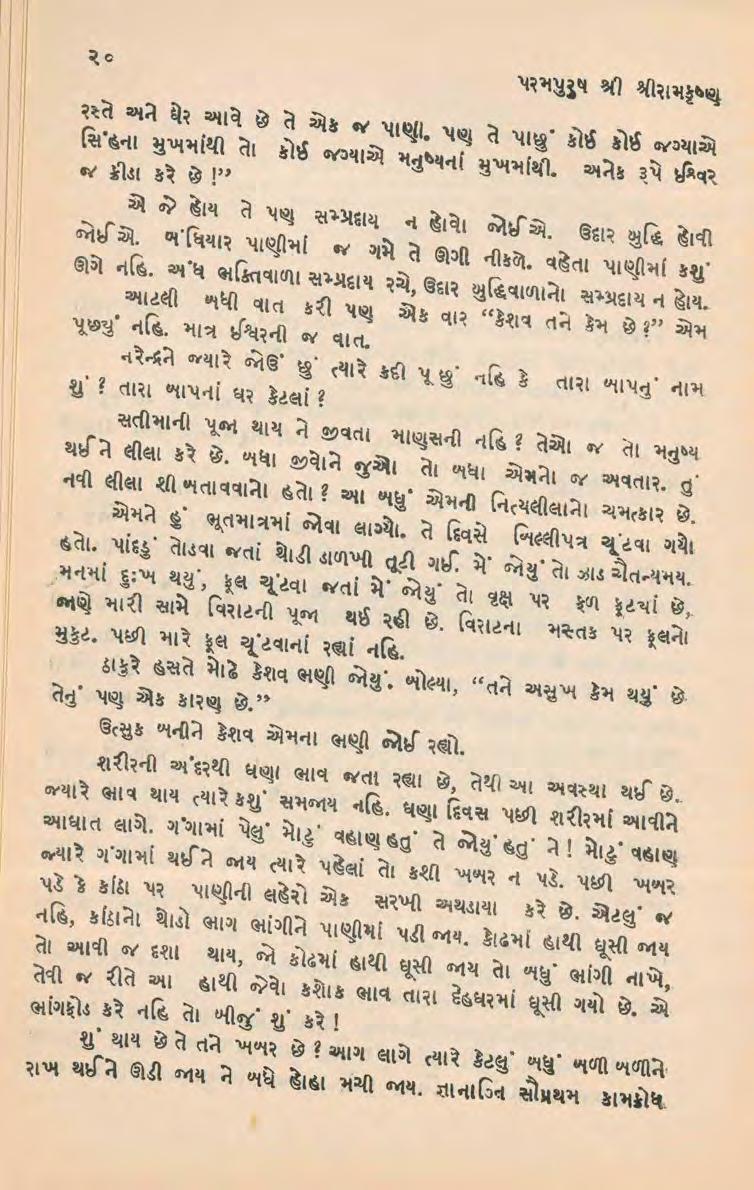 ૨૦
પરમપુરુષ શ્રી શ્રીરામકૃષ્ણ
રસ્તે અને ઘેર આવે છે તે એક જ પાણી. પણ તે પાછું કોઈ કોઈ જગ્યાએ
સિંહના મુખમાંથી તો કોઈ જગ્યાએ મનુષ્યનાં મુખમાંથી. અનેક રૂપે ઈશ્વર
જ ક્રીડા કરે છે !”
એ જે હોય તે પણ સમ્પ્રદાય ન હોવો જોઈએ. ઉદાર બુદ્ધિ હોવી
જોઈએ. બંધિયાર પાણીમાં જ ગમે તે ઊગી નીકળે. વહેતા પાણીમાં કશું
ઊગે નહિ. અંધ ભક્તિવાળા સમ્પ્રદાય રચે, ઉદાર બુદ્ધિવાળાનો સમ્પ્રદાય ન હોય.
આટલી બધી વાત કરી પણ એક વાર “કેશવ તને કેમ છે ?” એમ
પૂછ્યું નહિ. માત્ર ઈશ્વરની જ વાત.
નરેન્દ્રને જ્યારે જોઉં છું ત્યારે કદી પૂછું નહિ કે તારા બાપનું નામ
શું ? તારા બાપનાં ઘર કેટલાં ?
સતીમાની પૂજા થાય ને જીવતા માણસની નહિ ? તેઓ જ તો મનુષ્ય
થઈને લીલા કરે છે. બધા જીવોને જુઓ તો બધા એમનો જ અવતાર. તું
નવી લીલા શી બતાવવાનો હતો ? આ બધું એમની નિત્યલીલાનો ચમત્કાર છે.
એમને હું ભૂતમાત્રમાં જોવા લાગ્યો. તે દિવસે બિલ્લીપત્ર ચૂંટવા ગયો
હતો. પાંદડું તોડવા જતાં થોડી ડાળખી તૂટી ગઈ. મેં જોયું તો ઝાડ ચૈતન્યમય.
મનમાં દુઃખ થયું, ફૂલ ચૂંટવા જતાં મેં જોયું તો વૃક્ષ પર ફળ ફૂટ્યાં છે,
જાણે મારી સામે વિરાટની પૂજા થઈ રહી છે. વિરાટના મસ્તક પર ફૂલનો
મુકુટ. પછી મારે ફૂલ ચૂંટવાનાં રહ્યાં નહિ.
ઠાકુરે હસતે મોઢે કેશવ ભણી જોયું. બોલ્યા, “તને અસુખ કેમ થયું છે
તેનું પણ એક કારણ છે.”
ઉત્સુક બનીને કેશવ એમના ભણી જોઈ રહ્યો.
શરીરની અંદરથી ઘણા ભાવ જતા રહ્યા છે, તેથી આ અવસ્થા થઈ છે.
જ્યારે ભાવ થાય ત્યારે કશું સમજાય નહિ. ઘણા દિવસ પછી શરીરમાં આવીને
આઘાત લાગે. ગંગામાં પેલું મોટું વહાણ હતું તે જોયું હતું ને ! મોટું વહાણ
જ્યારે ગંગામાં થઈને જાય ત્યારે પહેલાં તો કશી ખબર ન પડે. પછી ખબર
પડે કે કાંઠા પર પાણીની લહેરો એક સરખી અથડાયા કરે છે. એટલું જ
નહિ, કાંઠાનો થોડો ભાગ ભાંગીને પાણીમાં પડી જાય. કોઢમાં હાથી ઘૂસી જાય
તો આવી જ દશા થાય, જો કોઢમાં હાથી ઘૂસી જાય તો બધું ભાંગી નાખે,
તેવી જ રીતે આ હાથી જેવો કશોક ભાવ તારા દેહઘરમાં ઘૂસી ગયો છે. એ
ભાંગફોડ કરે નહિ તો બીજું શું કરે !
શું થાય છે તે તને ખબર છે ? આગ લાગે ત્યારે કેટલું બધું બળી બળીને
રાખ થઈને ઊડી જાય ને બધે હોહા મચી જાય. જ્ઞાનાગ્નિ સૌપ્રથમ કામક્રોધ